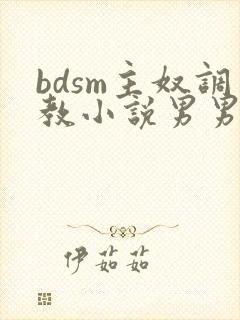 bdsm主奴調
教小說男男
伊茹茹